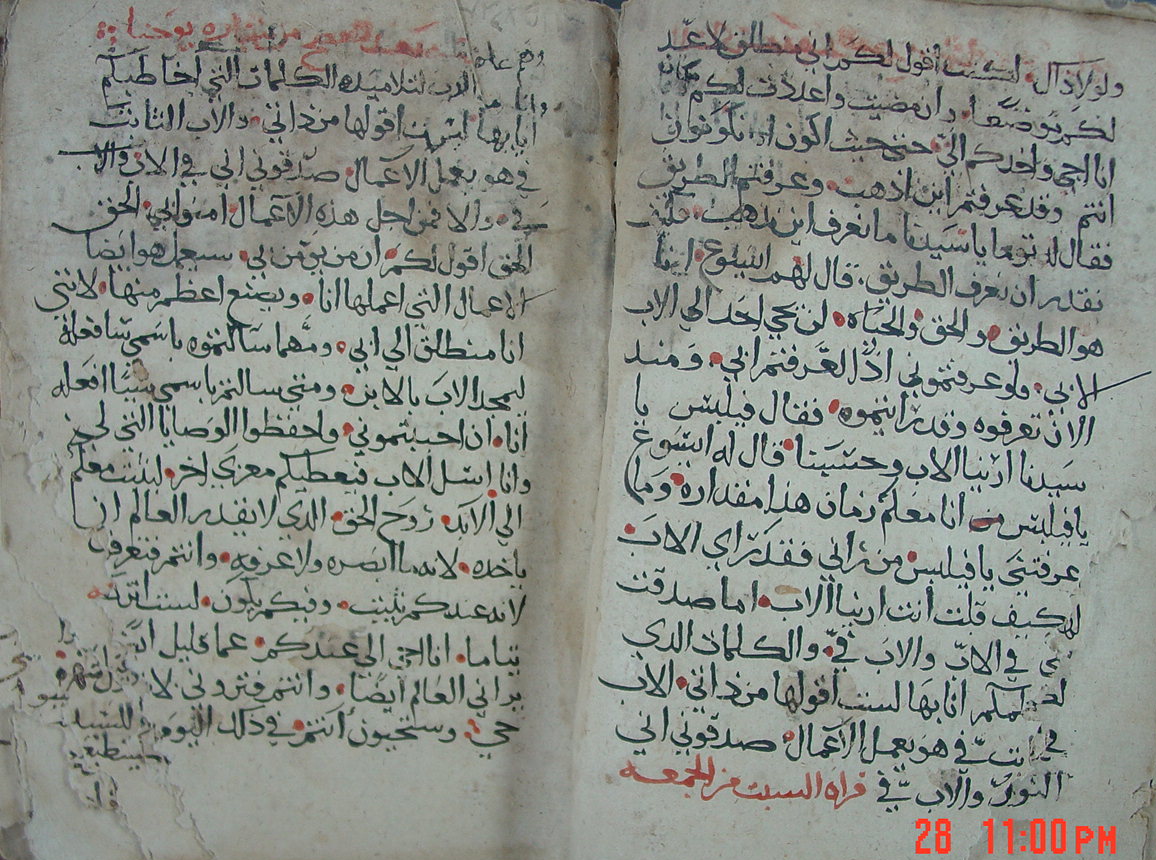 ولولا ذاك لكنت اقول لكم اني منطلق لاعد
لكم موضعا وان مضيت واعددت لكم مكانا
انا اجي واخدكم الي حتي حيث اكون انا تكونوا
انتم وقد عرفتم اين اذهب وعرفتم الطريق
فقال له توما يا سيدنا ما نعرف اين تذهب فكيف
نقدر ان نعرف الطريق قال لهم ايسوع انا
هو الطريق والحق والحياه لن يجي احد الي الاب
الا بي ولو عرفتموني اذا لعرفتم ابي ومند
الان تعرفوه وقد رايتموه فقال فيلبس يا
سيدنا ارينا الاب وحسبنا قال له ايسوع
يا فيلبس انا معكم زمان هذا مقداره وما
عرفتني يا فيلبس من راني فقد راي الاب
كيف قلت انت ارينا الاب اما صدقت
في الاب والاب في والكلمات الدي
انا بها لست اقولها من ذاتي الاب
في هو يعمل الاعمال صدقوني اني
والاب في قراه السبت من الجمعه
يوحنا
الرب لتلاميذه الكلمات التي اخاطبكم
انا بها لست اقولها من ذاتي والاب الثابت
في هو يعمل الاعمال صدقوني اني في الاب والاب
في والا فمن اجل هذه الاعمال امنوا بي الحق
الحق اقول لكم ان من يومن بي سيعمل هو ايضا
الاعمال التي اعملها انا ويصنع اعظم منها لانني
انا منطلق الي ابي ومهما سالتموه باسمي انا فعله
ليمجد الاب بالابن ومتي سالتم باسمي شيا افعله
انا ان احببتموني واحفظوا الوصايا التي لي
وانا اسل الاب فيعطيكم معزي اخر ليثبت معكم
الي الابد روح الحق الدي لا يقدر العالم ان
ياخده لانه ما ابصره ولا عرفه وانتم فتعرفو
لانه عندكم يثبت وفيكم يكون لست اترككم
يتاما انا اجي الي عندكم عما قليل
يراني العالم ايضا وانتم فتروني لا
حي وستحيون انتم في ذلك اليوم
28 11:00 PM